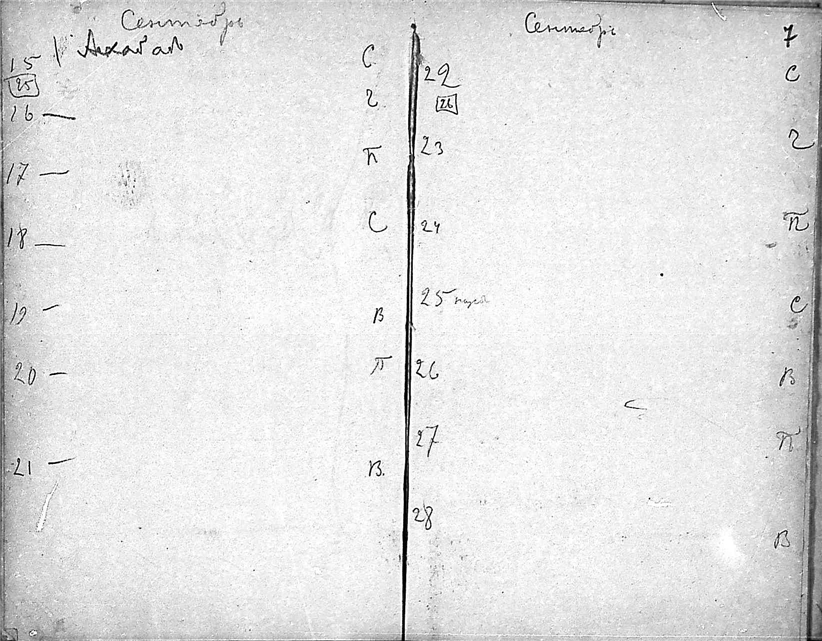 Сентябрь
15 С
25
16 — Ч
17 — П
18 — С
19 — В
20 — П
21 — В.
Сентябрь 7
22 С
26
23 Ч
24 П
25 С
26 В
27 П
28 В